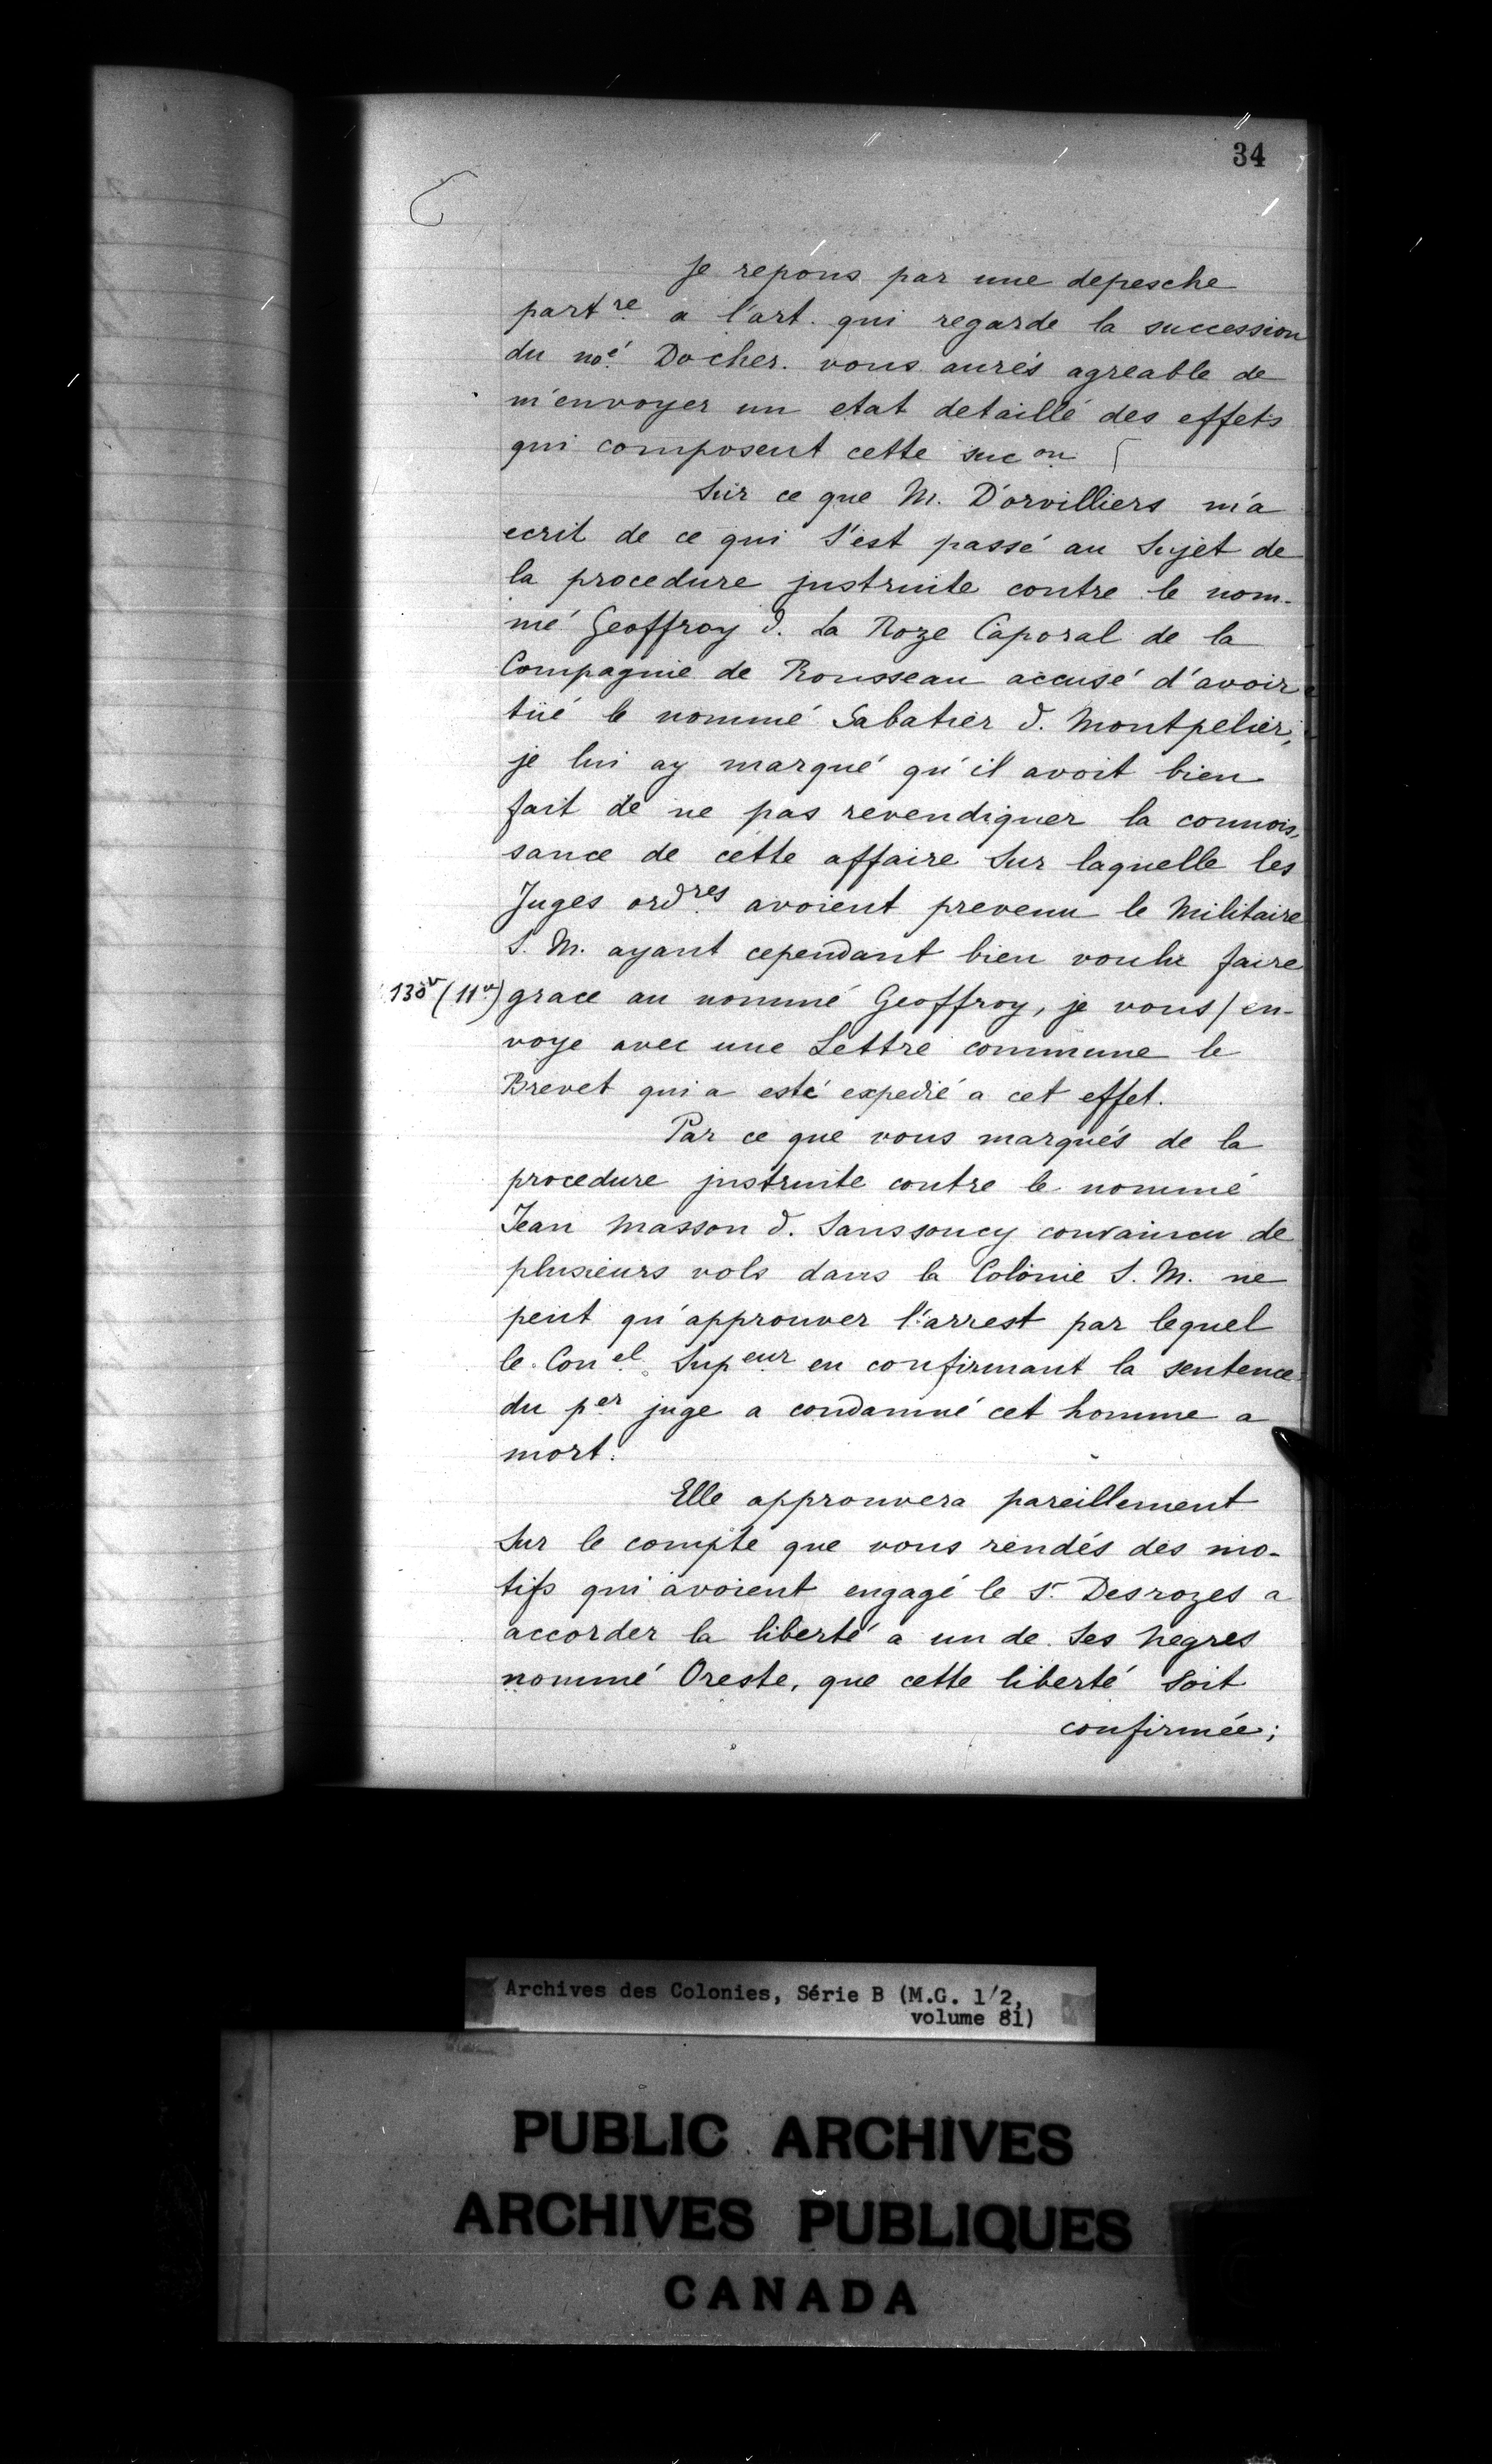 34
Je repons par une depesche
partre a l'art. qui regarde la succession
du noé Docher. vous aurés agreable de
m'envoyer un etat detaillé des effets
qui composent cette sucon
Sur ce que M. D'orvilliers m'a
ecrit de ce qui s'est passé au Sujet de
la procedure jnstruite contre le nom-
mé Geoffroy d. La Roze Caporal de la
Compagnie de Rousseau accusé d'avoir
tüé le nommé Sabatier d. Montpelier,
je lui ay marqué qu'il avoit bien
fait de ne pas revendiquer la connois,
sance de cette affaire Sur laquelle les
Juges ordres avoient prevenu le Militaire
S. M. ayant cependant bien voulu faire
130v (11v) grace au nommé Geoffroy, je vous/en-
voye avec une Lettre commune le
Brevet qui a esté expedié a cet effet.
Par ce que vous marqués de la
procedure jnstruite contre le nommé
Jean Masson d. Sanssoucy convaincu de
plusieurs vols dans la Colonie S. M. ne
peut qu'approuver l'arrest par lequel
le Conel Supeur en confirmant la sentence
du per juge a condamné cet homme a
mort.
Elle approuvera pareillement
Sur le compte que vous rendés des mo-
tifs qui avoient engagé le Sr. Desrozes a
accorder la liberté a un de Ses Negres
nommé Oreste, que cette liberté Soit
confirmée;
Archives des Colonies, Série B (M.G. 1/2,
volume 81)
PUBLIC ARCHIVES
ARCHIVES PUBLIQUES
CANADA